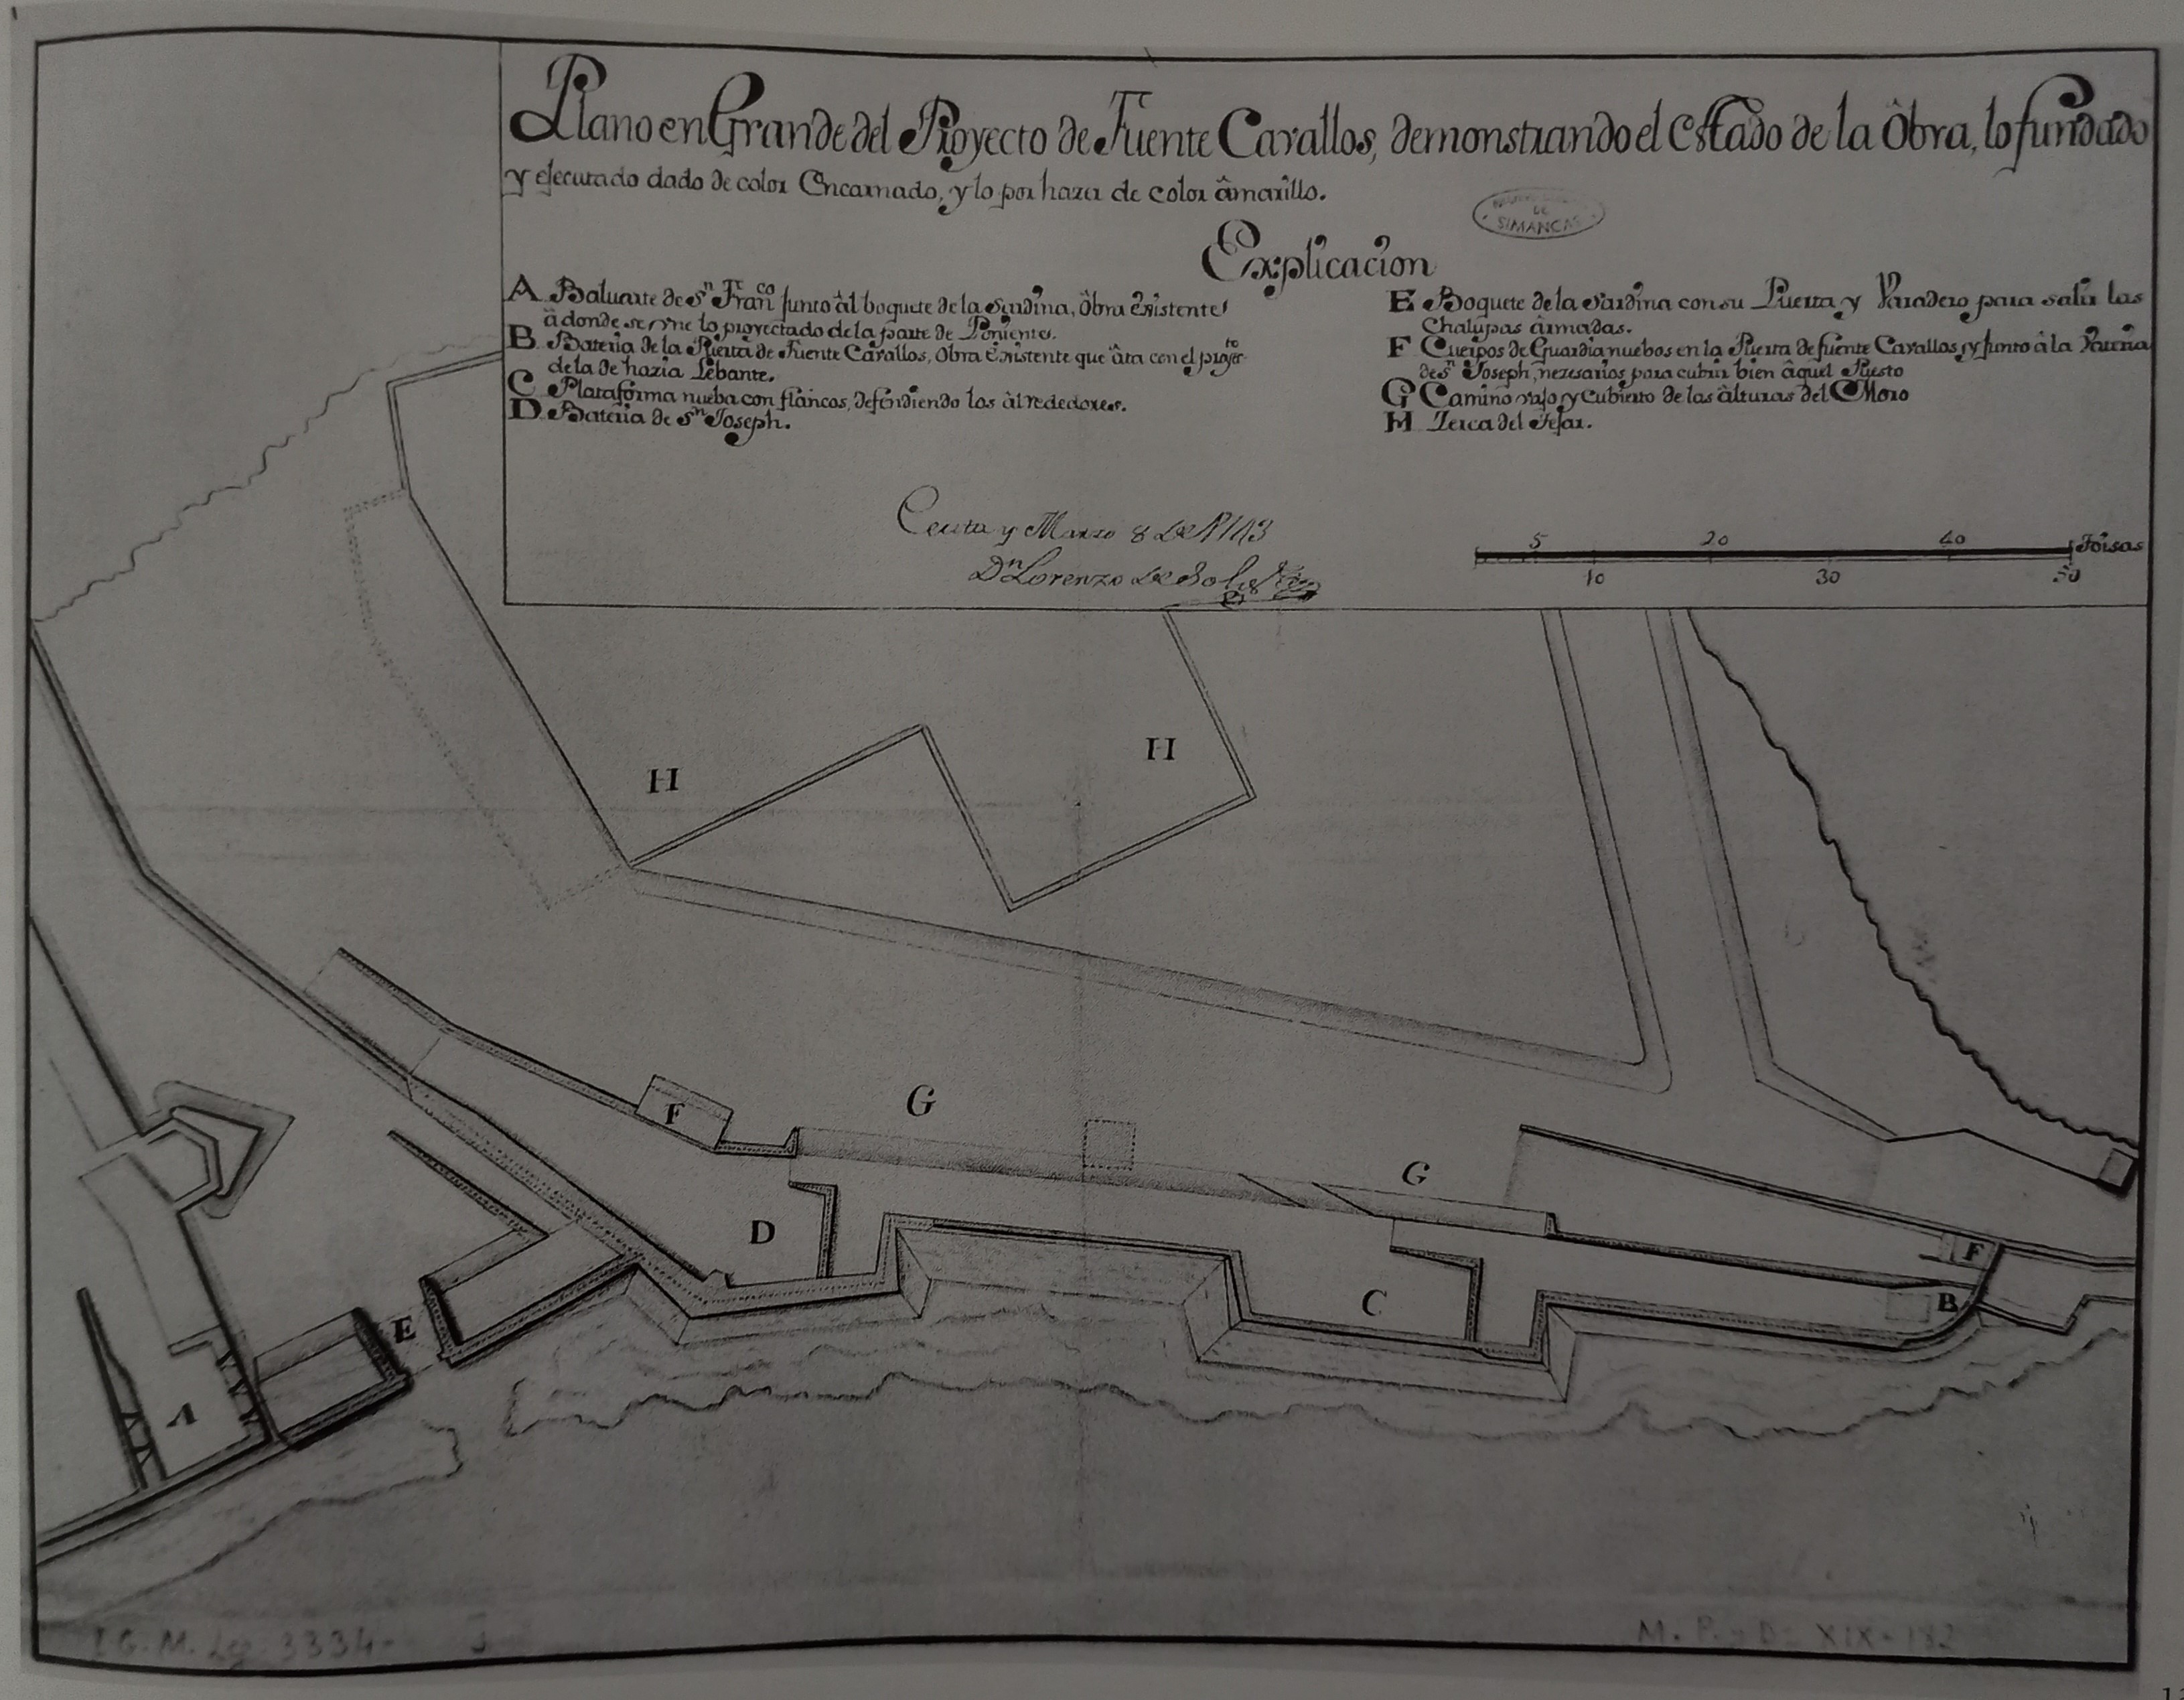 Plano en Grande del Proyecto de Fuente Cavallos, demonstrando el Estado de la Obra, lo fundado
y ejecutado dado de color Encarnado, y lo por hazer de color âmarillo.
DE
SIMANCAS
Explicacion
A Baluarte de Sn Franco junto âl boquete de la Sardina, Obra Existente
â donde se vne lo proyectado de la parte de Poniente.
B Bateria de la Puerta de Fuente Cavallos, Obra Existente que âta con el proyecto
de la de hazia Lebante.
C Plataforma nueba con flancos, defendiendo los âlrededores.
D Bateria de Sn Joseph.
E Boquete de la Sardina con su Puerta y Varadero para salir las
Chalupas ârmadas.
F Cuerpos de Guardia nuebos en la Puerta de fuente Cavallos, y junto â la Vateria
de Sn Joseph, nezesarios para cubrir bien âquel Puesto
G Camino vajo y Cubierto de las âlturas del Moro
H Zerca del Tejar.
Ceuta y Marzo 8 de
Dn Lorenzo de Solis
5 20 40 Toisas
10 30 50
H
H
G
F
G
D
F
C
B
E
A
G. M. Leg. 3334-
M. P. y D. XIX-182